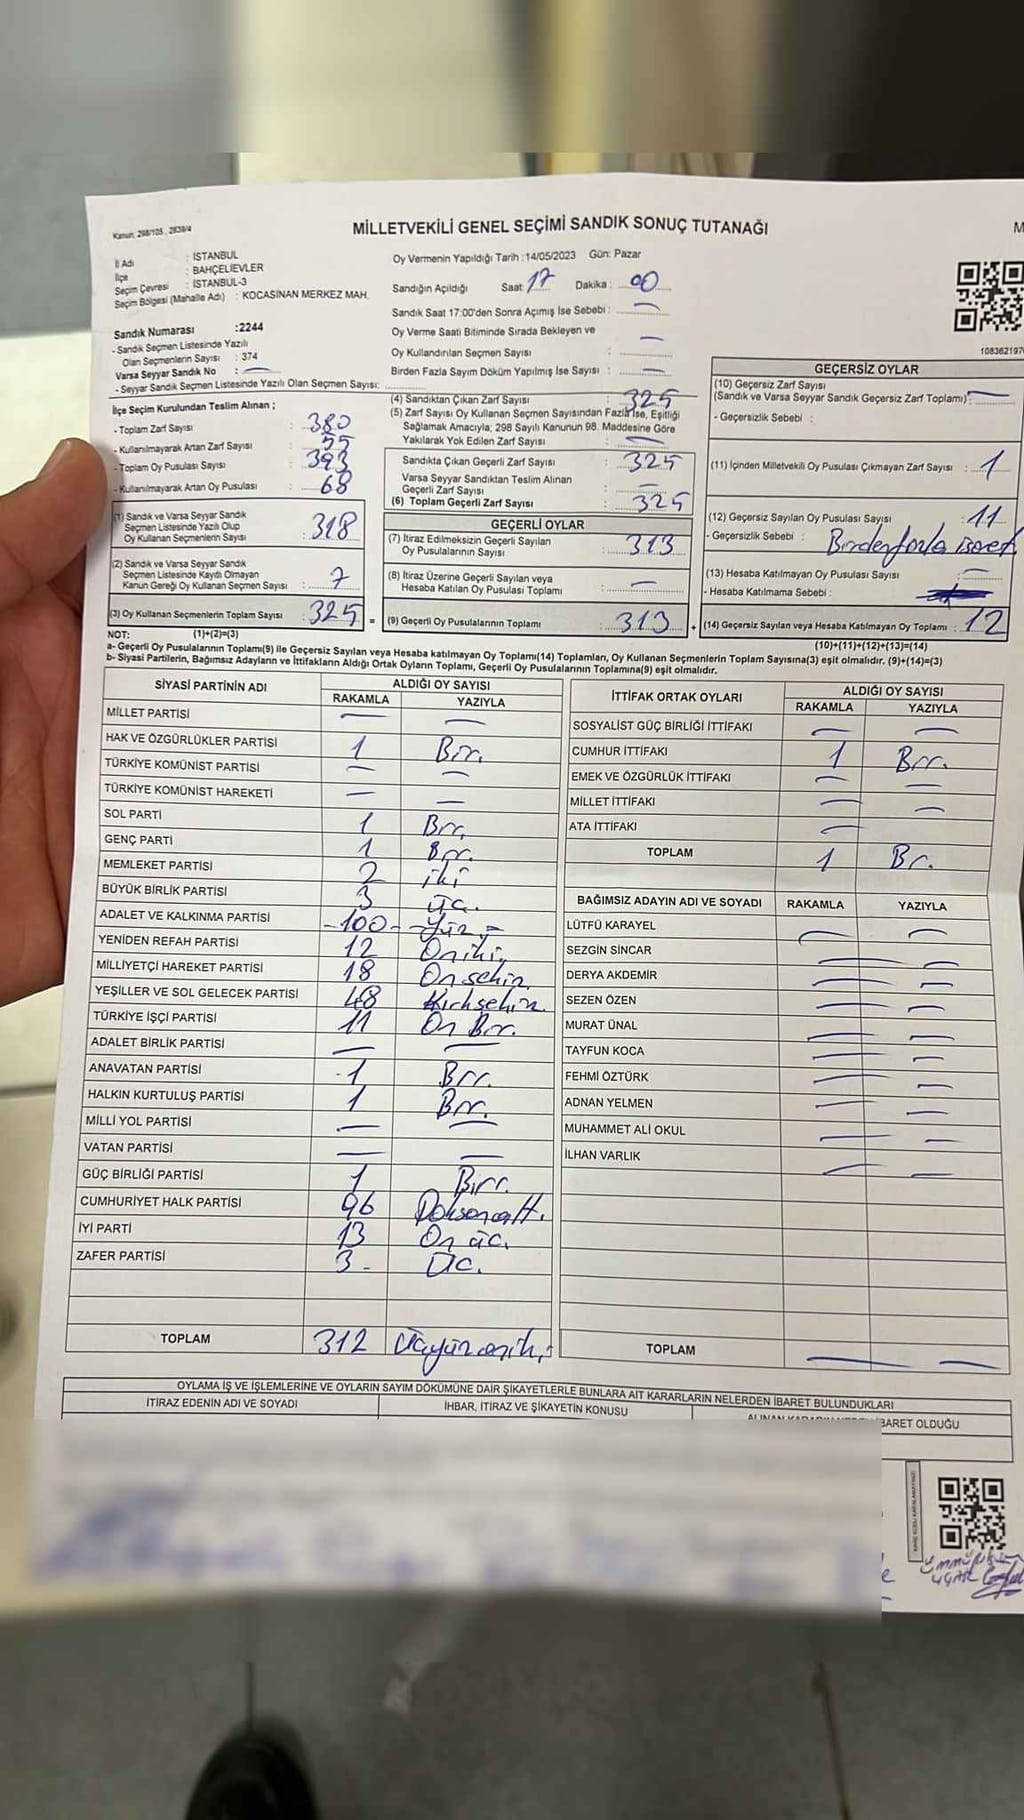 Kanun, 298/105 , 2839/4
MİLLETVEKİLİ GENEL SEÇİMİ SANDIK SONUÇ TUTANAĞI
M
İl Adı : İSTANBUL
İlçe : BAHÇELİEVLER
Seçim Çevresi : İSTANBUL-3
Seçim Bölgesi (Mahalle Adı) : KOCASİNAN MERKEZ MAH.
Sandık Numarası :2244
- Sandık Seçmen Listesinde Yazılı
Olan Seçmenlerin Sayısı : 374
Varsa Seyyar Sandık No : —
- Seyyar Sandık Seçmen Listesinde Yazılı Olan Seçmen Sayısı:
Oy Vermenin Yapıldığı Tarih :14/05/2023 Gün: Pazar
Sandığın Açıldığı Saat 17 Dakika : 00
Sandık Saat 17:00'den Sonra Açımış İse Sebebi : —
Oy Verme Saati Bitiminde Sırada Bekleyen ve —
Oy Kullandırılan Seçmen Sayısı :
Birden Fazla Sayım Döküm Yapılmış İse Sayısı : —
İlçe Seçim Kurulundan Teslim Alınan ;
- Toplam Zarf Sayısı : 380
- Kullanılmayarak Artan Zarf Sayısı : 55
- Toplam Oy Pusulası Sayısı : 393
- Kullanılmayarak Artan Oy Pusulası : 68
(1) Sandık ve Varsa Seyyar Sandık
Seçmen Listesinde Yazılı Olup
Oy Kullanan Seçmenlerin Sayısı : 318
(2) Sandık ve Varsa Seyyar Sandık
Seçmen Listesinde Kayıtlı Olmayan
Kanun Gereği Oy Kullanan Seçmen Sayısı : 7
(3) Oy Kullanan Seçmenlerin Toplam Sayısı : 325 =
(4) Sandıktan Çıkan Zarf Sayısı : 325
(5) Zarf Sayısı Oy Kullanan Seçmen Sayısından Fazla İse, Eşitliği
Sağlamak Amacıyla; 298 Sayılı Kanunun 98. Maddesine Göre
Yakılarak Yok Edilen Zarf Sayısı : —
Sandıkta Çıkan Geçerli Zarf Sayısı : 325
Varsa Seyyar Sandıktan Teslim Alınan
Geçerli Zarf Sayısı : —
(6) Toplam Geçerli Zarf Sayısı : 325
GEÇERLİ OYLAR
(7) İtiraz Edilmeksizin Geçerli Sayılan
Oy Pusulalarının Sayısı : 313
(8) İtiraz Üzerine Geçerli Sayılan veya
Hesaba Katılan Oy Pusulası Toplamı : —
(9) Geçerli Oy Pusulalarının Toplamı : 313 +
1083621970
GEÇERSİZ OYLAR
(10) Geçersiz Zarf Sayısı
(Sandık ve Varsa Seyyar Sandık Geçersiz Zarf Toplamı) : —
- Geçersizlik Sebebi :
(11) İçinden Milletvekili Oy Pusulası Çıkmayan Zarf Sayısı : 1
(12) Geçersiz Sayılan Oy Pusulası Sayısı : 11
- Geçersizlik Sebebi : Birden fazla işaret
(13) Hesaba Katılmayan Oy Pusulası Sayısı : —
- Hesaba Katılmama Sebebi :
(14) Geçersiz Sayılan veya Hesaba Katılmayan Oy Toplamı : 12
NOT: (1)+(2)=(3) (10)+(11)+(12)+(13)=(14)
a- Geçerli Oy Pusulalarının Toplamı(9) ile Geçersiz Sayılan veya Hesaba katılmayan Oy Toplamı(14) Toplamları, Oy Kullanan Seçmenlerin Toplam Sayısına(3) eşit olmalıdır. (9)+(14)=(3)
b- Siyasi Partilerin, Bağımsız Adayların ve İttifakların Aldığı Ortak Oyların Toplamı, Geçerli Oy Pusulalarının Toplamına(9) eşit olmalıdır.
SİYASİ PARTİNİN ADI ALDIĞI OY SAYISI
RAKAMLA YAZIYLA
MİLLET PARTİSİ — —
HAK VE ÖZGÜRLÜKLER PARTİSİ 1 Bir.
TÜRKİYE KOMÜNİST PARTİSİ — —
TÜRKİYE KOMÜNİST HAREKETİ — —
SOL PARTİ 1 Bir.
GENÇ PARTİ 1 Bir.
MEMLEKET PARTİSİ 2 iki
BÜYÜK BİRLİK PARTİSİ 3 üç.
ADALET VE KALKINMA PARTİSİ -100- -Yüz.-
YENİDEN REFAH PARTİSİ 12 Oniki.
MİLLİYETÇİ HAREKET PARTİSİ 18 Onsekiz.
YEŞİLLER VE SOL GELECEK PARTİSİ 48 Kırksekiz.
TÜRKİYE İŞÇİ PARTİSİ 11 On Bir.
ADALET BİRLİK PARTİSİ — —
ANAVATAN PARTİSİ -1 Bir.
HALKIN KURTULUŞ PARTİSİ 1 Bir.
MİLLİ YOL PARTİSİ — —
VATAN PARTİSİ — —
GÜÇ BİRLİĞİ PARTİSİ 1 Bir.
CUMHURİYET HALK PARTİSİ 96 Doksanaltı.
İYİ PARTİ 13 On üç.
ZAFER PARTİSİ 3- Üç.
TOPLAM 312 Üçyüzoniki.
İTTİFAK ORTAK OYLARI ALDIĞI OY SAYISI
RAKAMLA YAZIYLA
SOSYALİST GÜÇ BİRLİĞİ İTTİFAKI — —
CUMHUR İTTİFAKI 1 Bir.
EMEK VE ÖZGÜRLÜK İTTİFAKI — —
MİLLET İTTİFAKI — —
ATA İTTİFAKI —
TOPLAM 1 Bir.
BAĞIMSIZ ADAYIN ADI VE SOYADI RAKAMLA YAZIYLA
LÜTFÜ KARAYEL — —
SEZGİN SİNCAR — —
DERYA AKDEMİR — —
SEZEN ÖZEN — —
MURAT ÜNAL — —
TAYFUN KOCA — —
FEHMİ ÖZTÜRK — —
ADNAN YELMEN — —
MUHAMMET ALİ OKUL — —
İLHAN VARLIK — —
TOPLAM — —
OYLAMA İŞ VE İŞLEMLERİNE VE OYLARIN SAYIM DÖKÜMÜNE DAİR ŞİKAYETLERLE BUNLARA AİT KARARLARIN NELERDEN İBARET BULUNDUKLARI
İTİRAZ EDENİN ADI VE SOYADI İHBAR, İTİRAZ VE ŞİKAYETİN KONUSU İBARET OLDUĞU